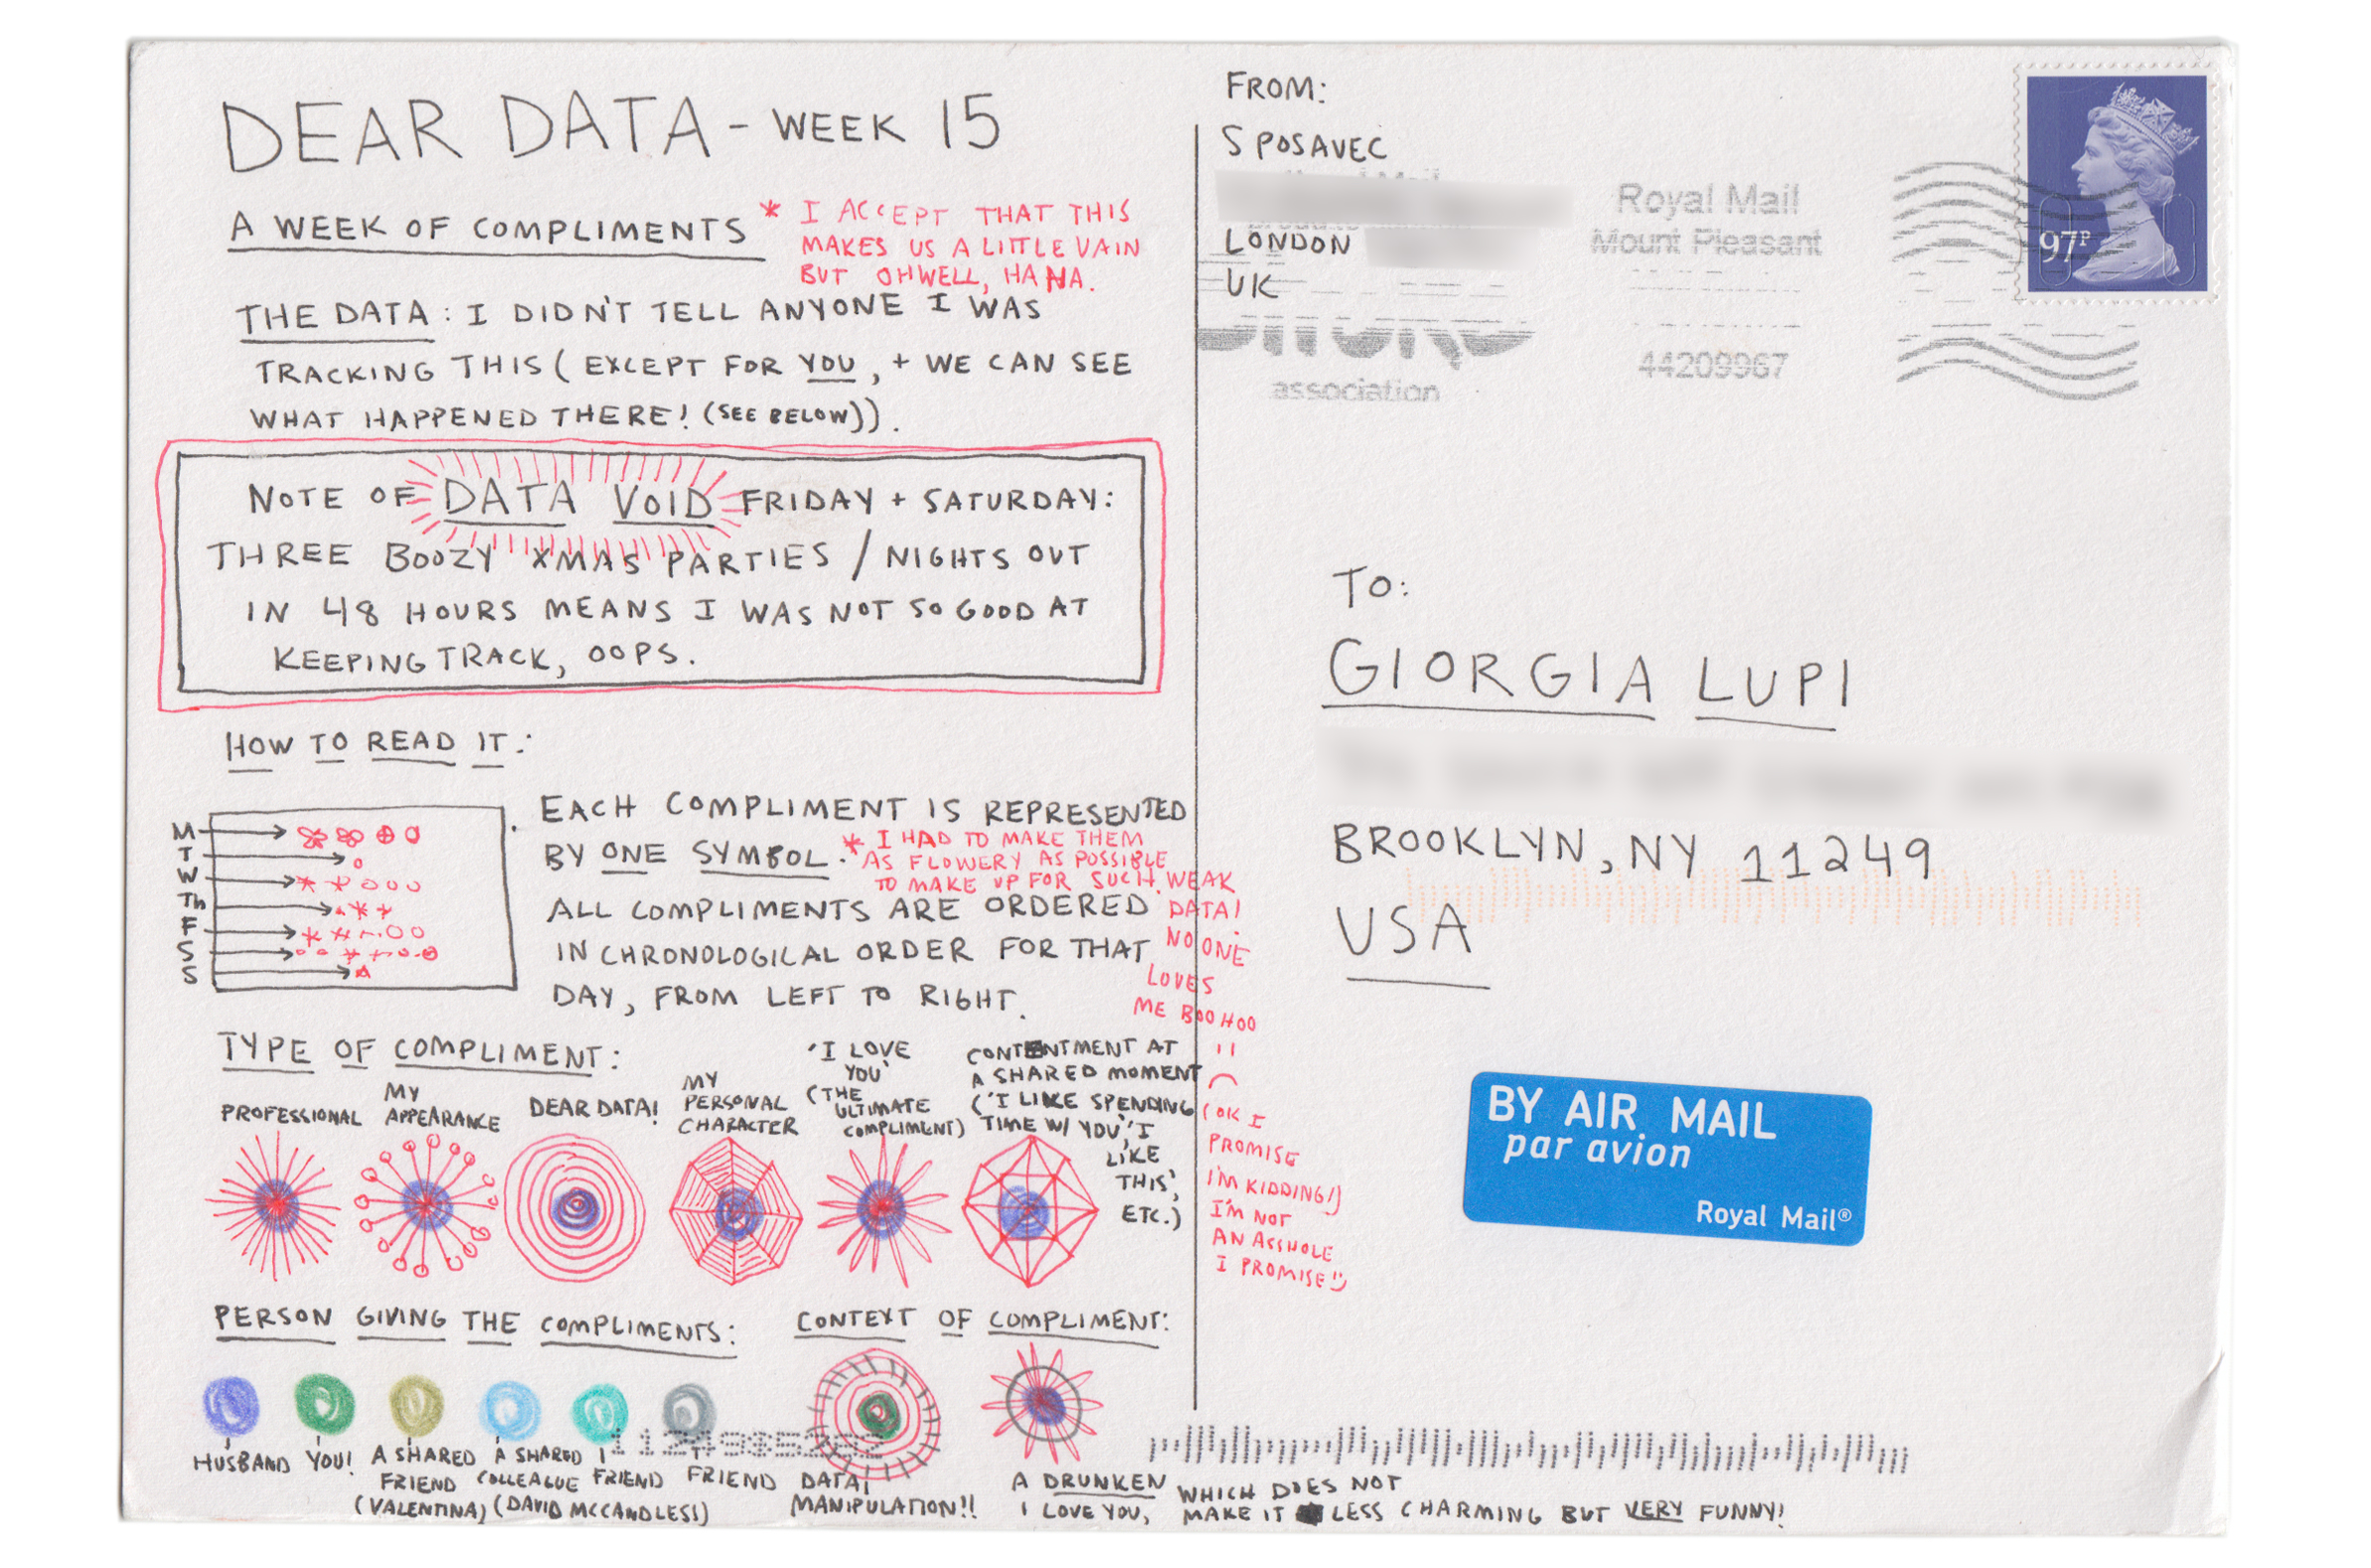 DEAR DATA - WEEK 15
A WEEK OF COMPLIMENTS
* I ACCEPT THAT THIS
MAKES US A LITTLE VAIN
BUT OHWELL, HA HA.
THE DATA: I DIDN'T TELL ANYONE I WAS
TRACKING THIS (EXCEPT FOR YOU, + WE CAN SEE
WHAT HAPPENED THERE! (SEE BELOW)).
NOTE OF DATA VOID FRIDAY + SATURDAY:
THREE BOOZY XMAS PARTIES / NIGHTS OUT
IN 48 HOURS MEANS I WAS NOT SO GOOD AT
KEEPING TRACK, OOPS.
HOW TO READ IT:
M
T
W
Th
F
S
S
EACH COMPLIMENT IS REPRESENTED
BY ONE SYMBOL.
* I HAD TO MAKE THEM
AS FLOWERY AS POSSIBLE
TO MAKE UP FOR SUCH WEAK
DATA!
NO ONE
LOVES
ME BOO HOO
(OK I
PROMISE
I'M KIDDING!)
I'M NOT
AN ASSHOLE
I PROMISE!
ALL COMPLIMENTS ARE ORDERED
IN CHRONOLOGICAL ORDER FOR THAT
DAY, FROM LEFT TO RIGHT.
TYPE OF COMPLIMENT:
PROFESSIONAL
MY
APPEARANCE
DEAR DATA!
MY
PERSONAL
CHARACTER
'I LOVE
YOU'
(THE
ULTIMATE
COMPLIMENT)
CONTENTMENT AT
A SHARED MOMENT
('I LIKE SPENDING
TIME W/ YOU', 'I
LIKE
THIS',
ETC.)
PERSON GIVING THE COMPLIMENTS:
HUSBAND
YOU!
A SHARED
FRIEND
(VALENTINA)
A SHARED
COLLEAGUE
(DAVID MCCANDLESS)
FRIEND
FRIEND
CONTEXT OF COMPLIMENT:
DATA
MANIPULATION!!
A DRUNKEN
I LOVE YOU,
WHICH DOES NOT
MAKE IT LESS CHARMING BUT VERY FUNNY!
FROM:
S POSAVEC
LONDON
UK
association
Royal Mail
Mount Pleasant
44209967
97P
TO:
GIORGIA LUPI
BROOKLYN, NY 11249
USA
BY AIR MAIL
par avion
Royal Mail®